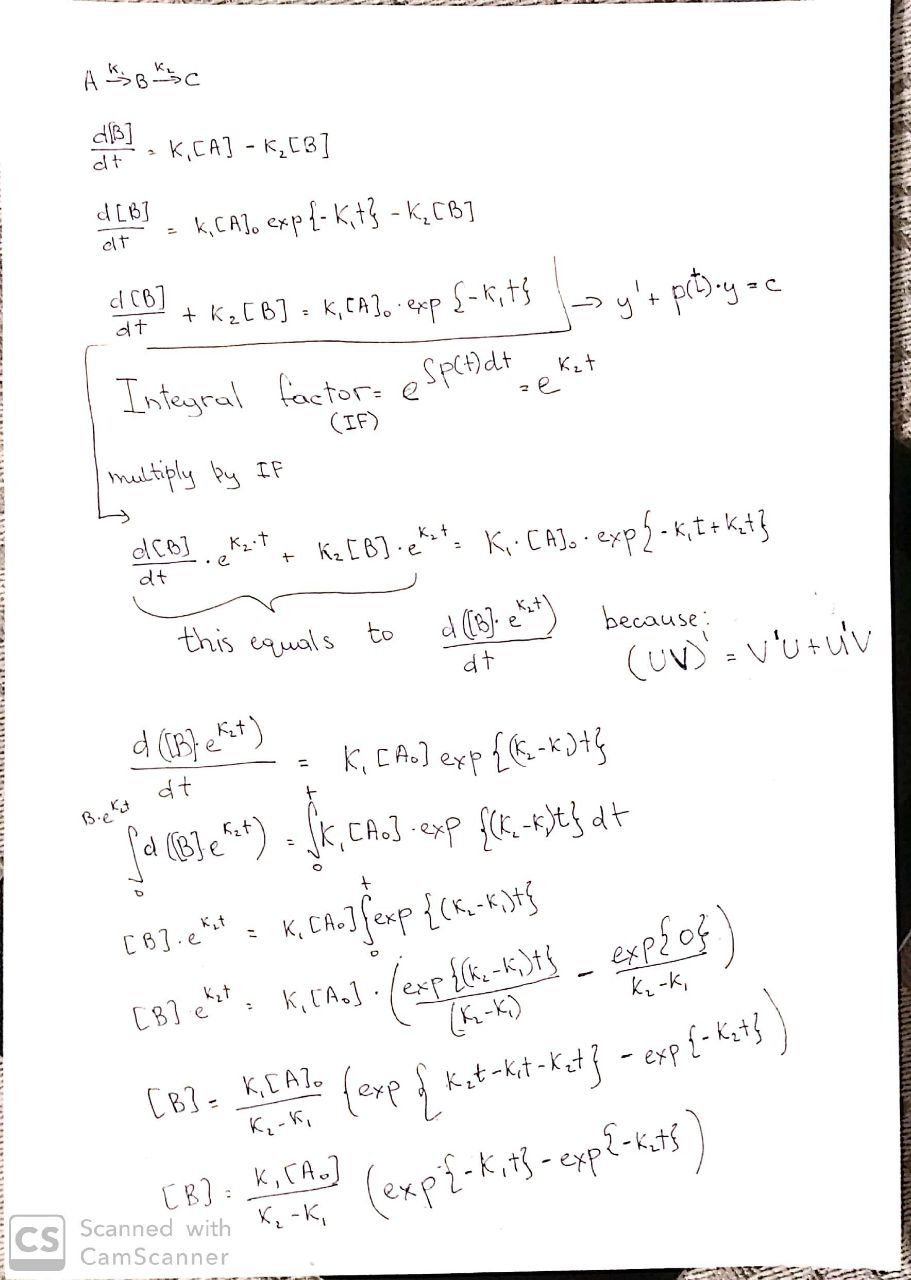 A K₁→ B K₂→ C
d[B]/dt = K₁[A] - K₂[B]
d[B]/dt = K₁[A]₀ exp{-K₁t} - K₂[B]
d[B]/dt + K₂[B] = K₁[A]₀·exp{-K₁t} → y' + p(t)·y = c
Integral factor = e^∫p(t)dt = e^K₂t
(IF)
multiply by IF
d[B]/dt · e^K₂·t + K₂[B]·e^K₂t = K₁·[A]₀·exp{-K₁t+K₂t}
this equals to d([B]·e^K₂t)/dt because:
(UV)' = V'U+U'V
d([B]·e^K₂t)/dt = K₁[A₀] exp{(K₂-K₁)t}
∫₀^B·e^K₂t d([B]e^K₂t) = ∫₀^t K₁[A₀]·exp{(K₂-K₁)t} dt
[B]·e^K₂t = K₁[A₀]∫₀^t exp{(K₂-K₁)t}
[B] e^K₂t = K₁[A₀]·(exp{(K₂-K₁)t}/(K₂-K₁) - exp{0}/K₂-K₁)
[B] = K₁[A]₀/K₂-K₁ (exp{K₂t-K₁t-K₂t} - exp{-K₂t})
[B] = K₁[A₀]/K₂-K₁ (exp{-K₁t}-exp{-K₂t})
CS Scanned with
CamScanner